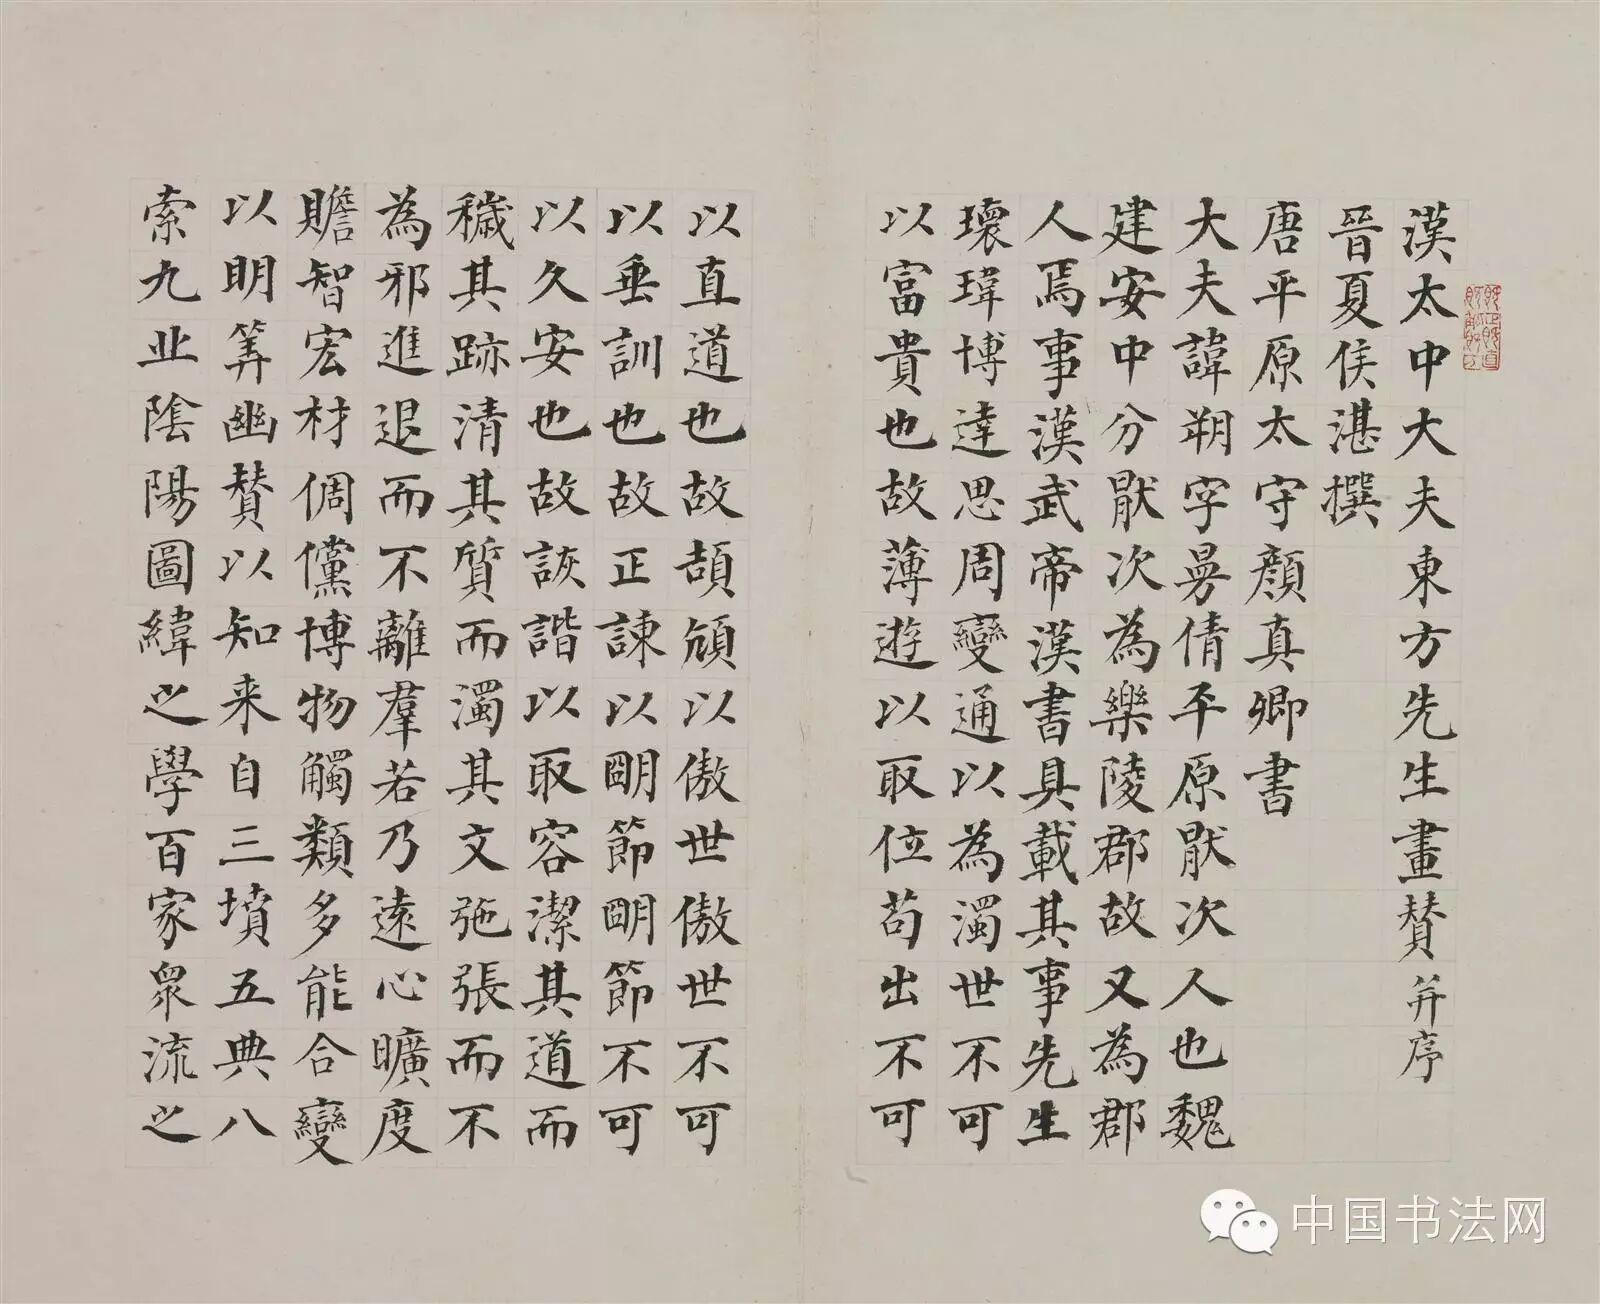 漢太中大夫東方先生畫贊并序
晉夏侯湛撰
唐平原太守顏真卿書
大夫諱朔字曼倩平原厭次人也魏
建安中分厭次為樂陵郡故又為郡
人焉事漢武帝漢書具載其事先生
瓌瑋博達思周變通以為濁世不可
以富貴也故薄遊以取位苟出不可
以直道也故頡頏以傲世傲世不可
以垂訓也故正諫以明節明節不可
以久安也故詼諧以取容潔其道而
穢其跡清其質而濁其文弛張而不
為邪進退而不離羣若乃遠心曠度
贍智宏材倜儻博物觸類多能合變
以明筭幽贊以知来自三墳五典八
索九丘陰陽圖緯之學百家眾流之
中国书法网